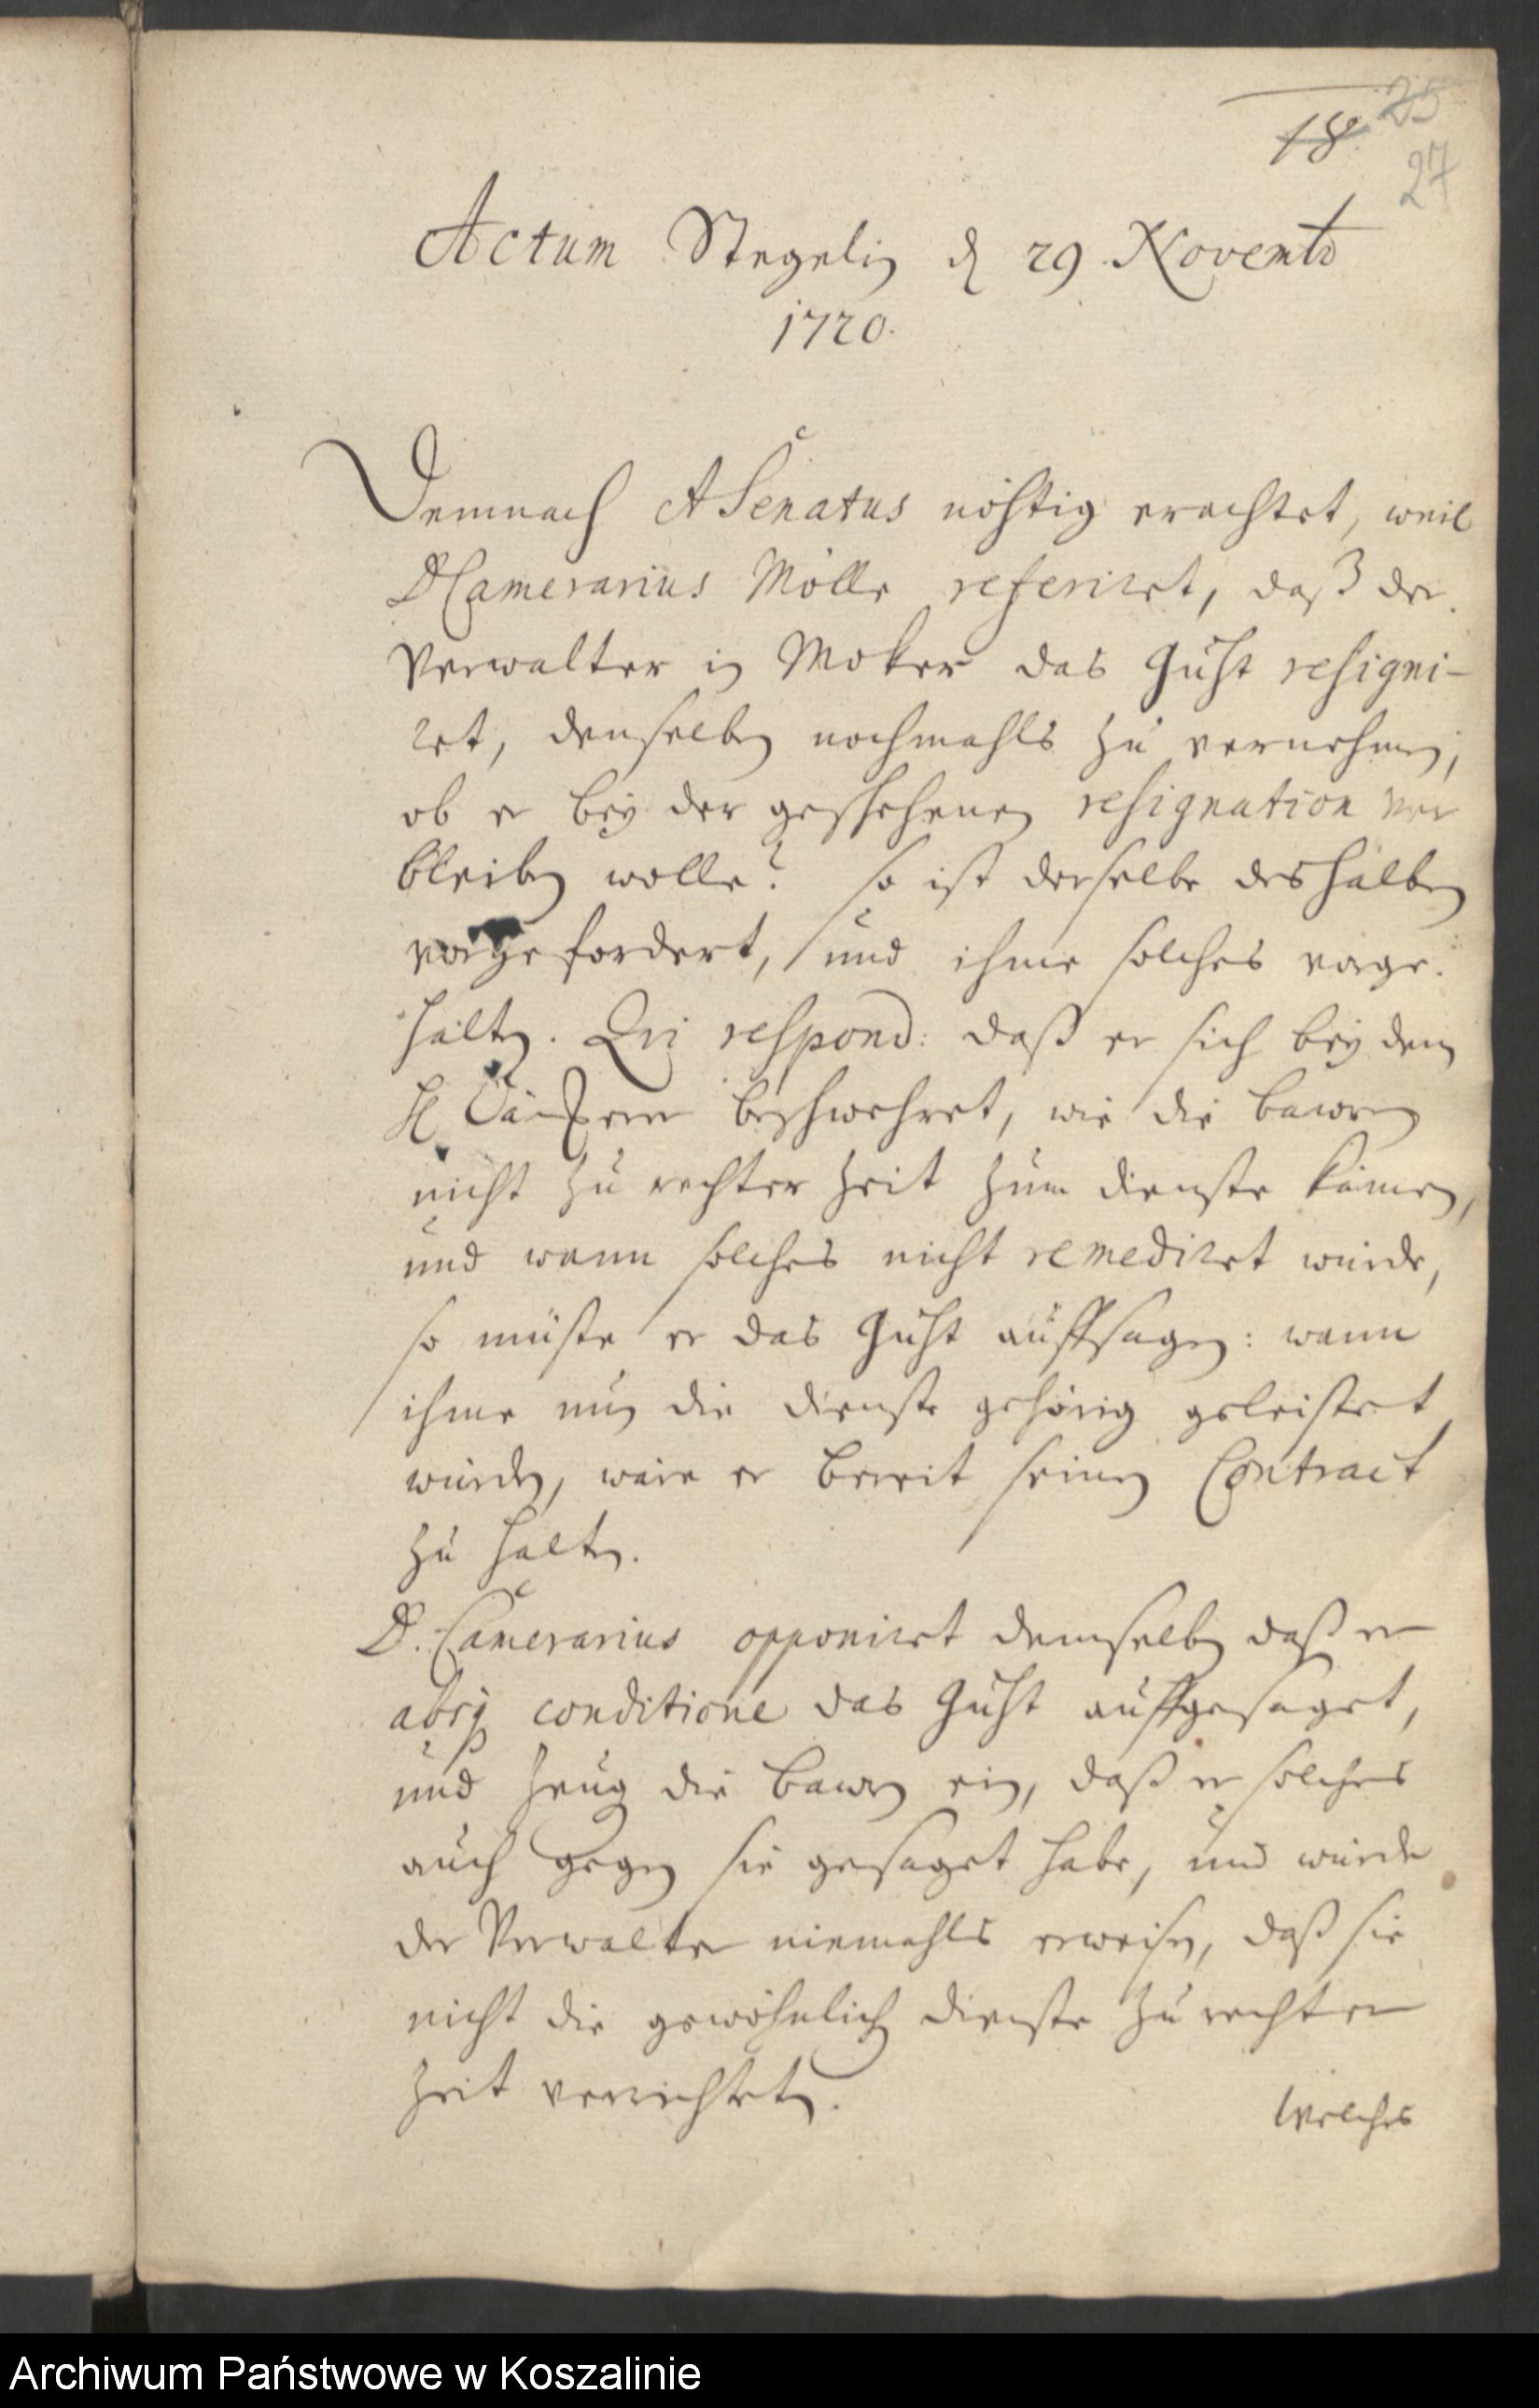 18. 25
27
Actum Stregelin d 29 Novemb
1720.
Demnach A Senatus nöhtig erachtet, weil
D Camerarius Mölle referiret, daß der
Verwalter in Moker das Guht resigni-
ret, denselben nochmahls zu vernehmen,
ob er bey der geschehenen resignation ver
bleiben wolle? so ist derselbe deshalben
vorgefordert, und ihme solches vorge-
halten. Qui respond: daß er sich bey dem
H beschwehret, wie die bawren
nicht zu rechter Zeit zum dienste kämen,
und wann solches nicht remediret würde,
so müste er das Guht auffsagen: wann
ihme nun die dienste gehörig geleistet
würden, wäre er bereit seinen Contract
zu halten.
D. Camerarius opponiret demselben daß er
absq conditione das Guht auffgesaget,
und zeug die bawren ein, daß er solches
auch gegen sie gesaget habe, und würde
der Verwalter niemahls erweisen, daß sie
nicht die gewöhnlich dienste zu rechter
Zeit verrichtet.
Welches
Archiwum Państwowe w Koszalinie